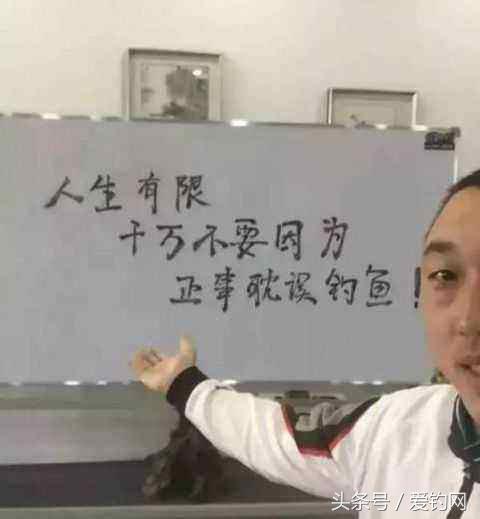 人生有限
千万不要因为
正事耽误钓鱼！
头条号 / 爱钓网